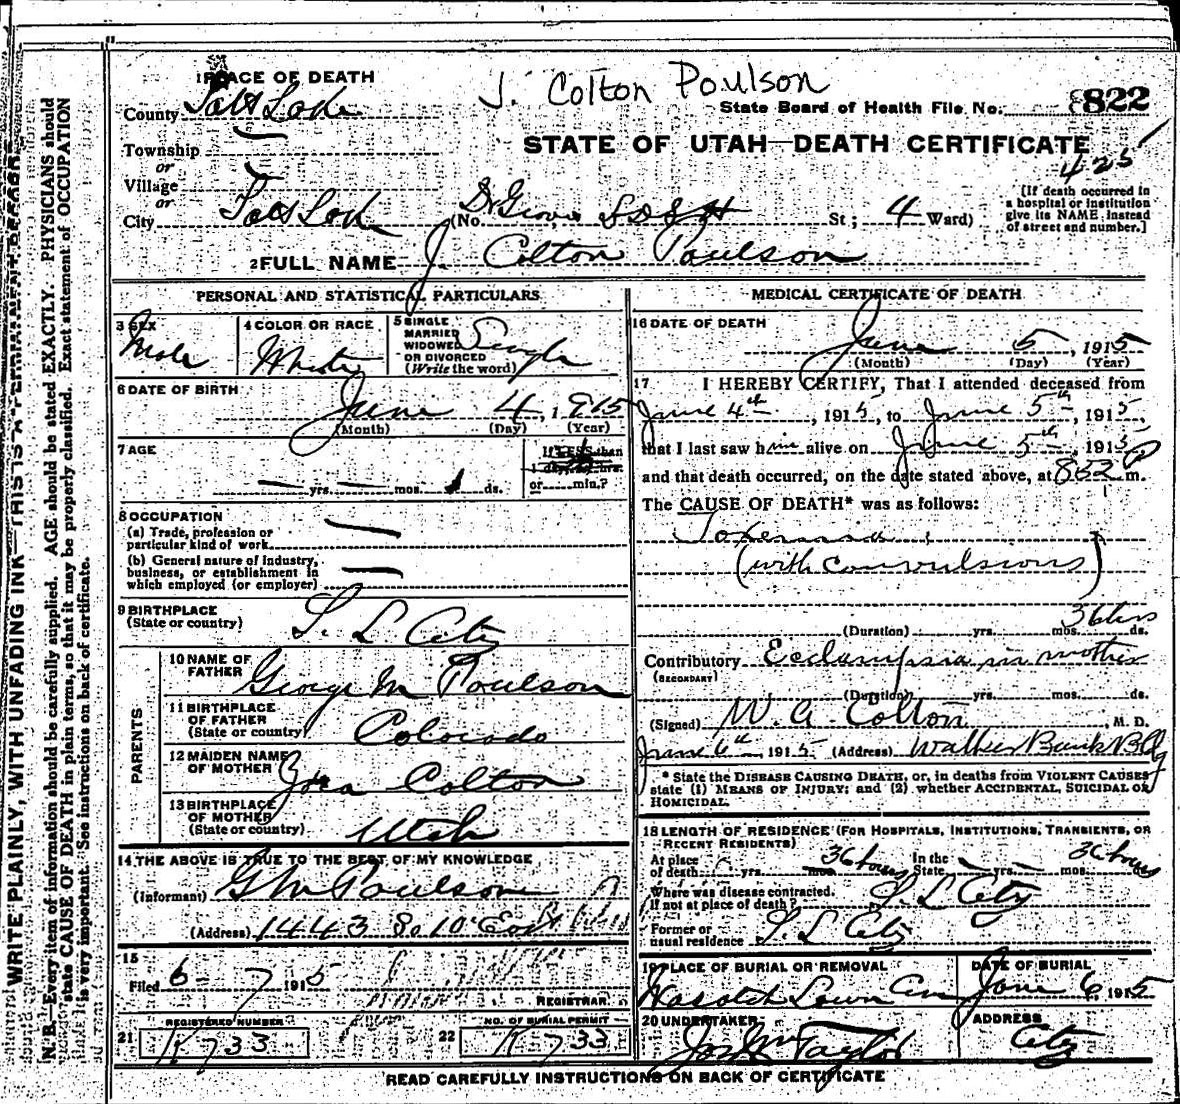 1 PLACE OF DEATH
J. Colton Poulson
County Salt Lake
State Board of Health File No. 822
Township
or
STATE OF UTAH—DEATH CERTIFICATE
425
Village
or
City Salt Lake (No. Dr Groves L D S H St; 4 Ward)
[If death occurred in
a hospital or institution
give its NAME instead
of street and number.]
2 FULL NAME J. Colton Poulson
PERSONAL AND STATISTICAL PARTICULARS
3 SEX Male
4 COLOR OR RACE White
5 SINGLE
MARRIED
WIDOWED
OR DIVORCED
(Write the word) Single
6 DATE OF BIRTH
June 4, 1915
(Month) (Day) (Year)
7 AGE
If LESS than
1 day, hrs.
yrs. mos. 1 ds. or min.?
8 OCCUPATION
(a) Trade, profession or
particular kind of work
(b) General nature of industry,
business, or establishment in
which employed (or employer)
9 BIRTHPLACE
(State or country) S. L City
PARENTS
10 NAME OF
FATHER George M Poulson
11 BIRTHPLACE
OF FATHER
(State or country) Colorado
12 MAIDEN NAME
OF MOTHER Zora Colton
13 BIRTHPLACE
OF MOTHER
(State or country) Utah
14 THE ABOVE IS TRUE TO THE BEST OF MY KNOWLEDGE
(Informant) G M Poulson
(Address) 1443 So 10 East
15
Filed 6 7 1915
REGISTRAR
REGISTERED NUMBER
21 K 733
NO. OF BURIAL PERMIT
22 K 733
MEDICAL CERTIFICATE OF DEATH
16 DATE OF DEATH
June 5, 1915
(Month) (Day) (Year)
17 I HEREBY CERTIFY, That I attended deceased from
June 4th, 1915, to June 5th, 1915,
that I last saw him alive on June 5th, 1915
and that death occurred, on the date stated above, at 852 P m.
The CAUSE OF DEATH* was as follows:
Toxemia
(with convulsions)
36 hrs
(Duration) yrs. mos. ds.
Contributory Eclampsia in mother
(SECONDARY)
(Duration) yrs. mos. ds.
(Signed) W. A. Colton, M. D.
June 6th, 1915 (Address) Walker Bank Bldg
* State the DISEASE CAUSING DEATH, or, in deaths from VIOLENT CAUSES
state (1) MEANS OF INJURY; and (2) whether ACCIDENTAL, SUICIDAL OR
HOMICIDAL.
18 LENGTH OF RESIDENCE (FOR HOSPITALS, INSTITUTIONS, TRANSIENTS, OR
RECENT RESIDENTS)
At place
of death yrs. mos. 36 hours In the
State yrs. mos. 36 hours
Where was disease contracted,
if not at place of death? S. L City
Former or
usual residence S. L City
19 PLACE OF BURIAL OR REMOVAL
Wasatch Lawn Cem
DATE OF BURIAL
June 6, 1915
20 UNDERTAKER
Jos Wm Taylor
ADDRESS
City
READ CAREFULLY INSTRUCTIONS ON BACK OF CERTIFICATE
WRITE PLAINLY, WITH UNFADING INK—THIS IS A PERMANENT RECORD
N. B.—Every item of information should be carefully supplied. AGE should be stated EXACTLY. PHYSICIANS should
state CAUSE OF DEATH in plain terms, so that it may be properly classified. Exact statement of OCCUPATION
is very important. See instructions on back of certificate.